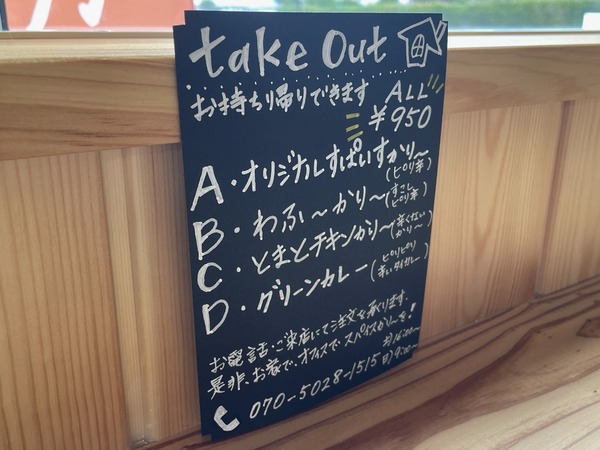 take Out
お持ち帰りできます ALL
¥950
A・オリジナルすぱいすかり〜
(ピリ辛)
B・わふ〜かり〜(すこしピリ辛)
C・とまとチキンかり〜(辛くないかり〜)
D・グリーンカレー(ピリピリ辛いタイカレー)
お電話・ご来店にてご注文を承ります。
是非、お家で、オフィスで スパイスかりーを!
070-5028-1515